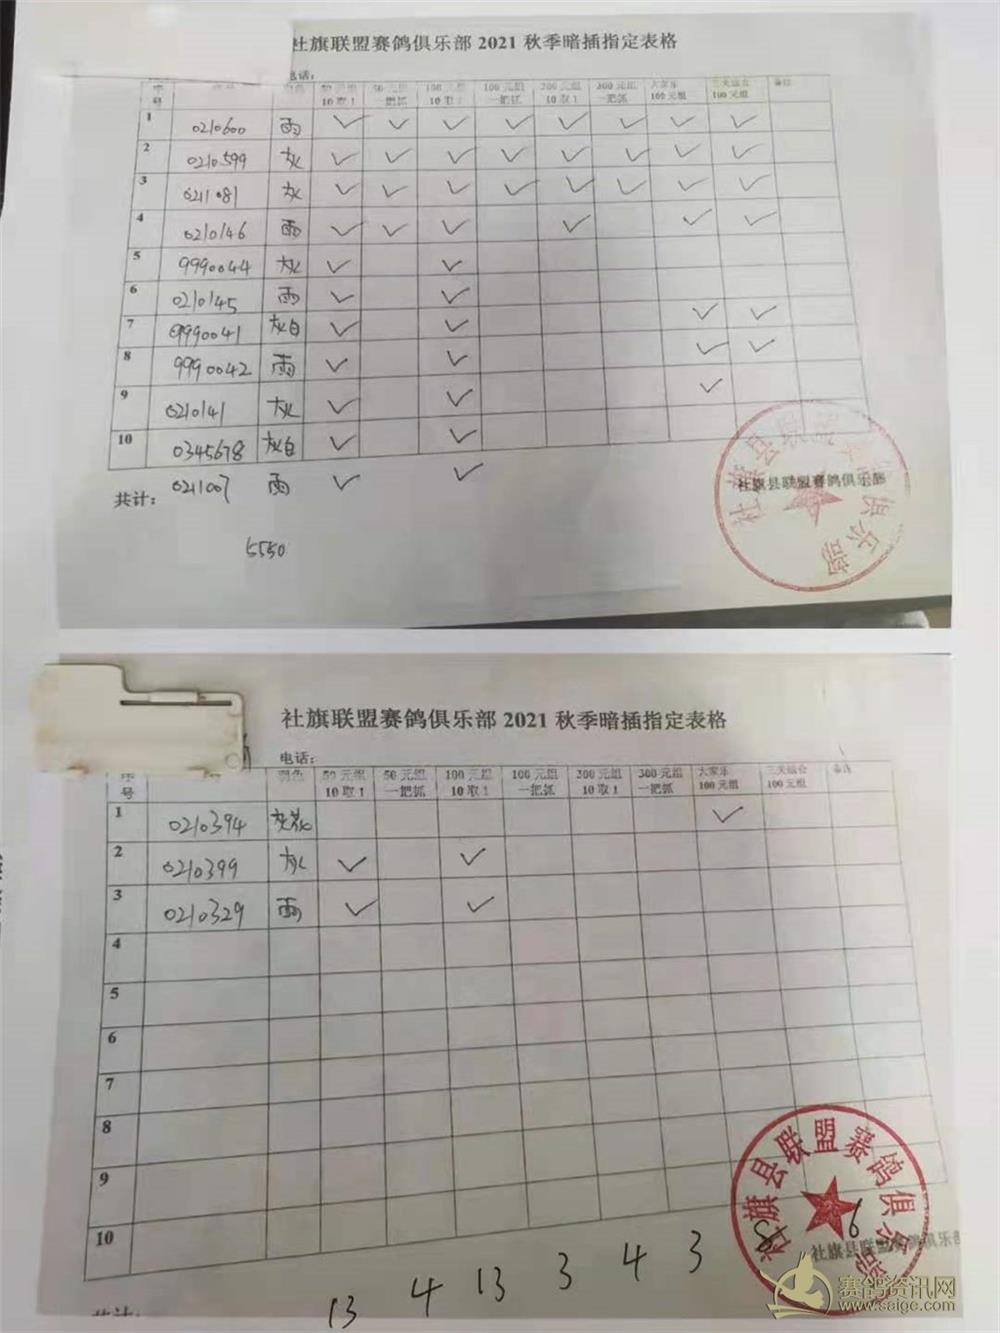 社旗联盟赛鸽俱乐部 2021 秋季暗插指定表格
电话：
序号 羽色 50 元组 10取1 50 元组 一把抓 100 元组 10取1 100 元组 一把抓 300 元组 10取1 300 元组 一把抓 大家乐 100 元组 三关综合 100 元组 备注
1 0210600 雨 ✓ ✓ ✓ ✓ ✓ ✓ ✓ ✓
2 0210599 灰 ✓ ✓ ✓ ✓ ✓ ✓ ✓ ✓
3 0211081 灰 ✓ ✓ ✓ ✓ ✓ ✓ ✓ ✓
4 0210146 雨 ✓ ✓ ✓ ✓ ✓ ✓
5 9990044 灰 ✓ ✓
6 0210145 雨 ✓ ✓
7 9990041 灰白 ✓ ✓ ✓ ✓
8 9990042 雨 ✓ ✓ ✓ ✓
9 0210141 灰 ✓ ✓ ✓
10 0345678 灰白 ✓ ✓
共计： 0211007 雨 ✓ ✓
社旗县联盟赛鸽俱乐部
社旗县联盟赛鸽俱乐部
5550
社旗联盟赛鸽俱乐部 2021 秋季暗插指定表格
电话：
序号 羽色 50 元组 10取1 50 元组 一把抓 100 元组 10取1 100 元组 一把抓 300 元组 10取1 300 元组 一把抓 大家乐 100 元组 三关综合 100 元组 备注
1 0210394 灰花 ✓
2 0210399 灰 ✓ ✓
3 0210329 雨 ✓ ✓
4
5
6
7
8
9
10
社旗县联盟赛鸽俱乐部
社旗县联盟赛鸽俱乐部
共计：
13 4 13 3 4 3 8 6
赛鸽资讯网
www.saige.com